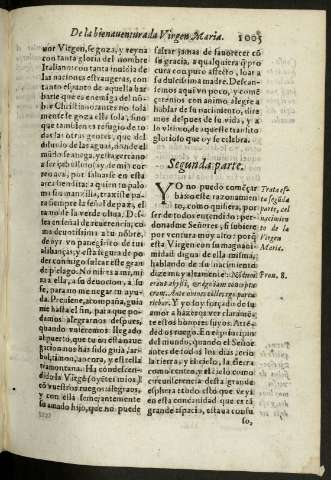 De la bienauenturada Virgen Maria. 1005
uor Virgen, se goza, y reyna
con tanta gloria del nombre
Italiano: con tanta inuidia de
las naciones estrangeras, con
tanto espanto de aquella bar
barie que es enemiga del nõ-
bre Christiano: antes no sola
mente se goza ella sola, sino
que tambien es refugio de to
das las otras gentes, que del
diluuio de las aguas, donde el
mũdo se anega, y està cercano
a ser sepultado (ay de mi) cor
reran, por saluarse en esta
arca bendita: a quien tu palo
ma sin manzilla, traeràs pa-
ra siempre la señal de paz, el
ramo de la verde oliua. De-
sea en señal de reuerencia, co
mo deuotissima alteza tuya
de oyr vn panegirico de tus
alabanças; y està segura de po
der contigo sulcar este gran-
de pielago. No mires a mi, mi
ra a ella, a su deuocion, a su
fe, para no me negar tu ayu-
da. Preuiene, acompaña, guia
me hasta el fin, para que po-
damos alegrarnos despues,
quando veremos llegado
al puerto, que tu en esta naue
gacion nos has sido guia, jar-
bol, timon, ancora, y estrella
tramontana. Ha condescen-
dido la Virgẽ (oyentes mios)
cõ vuestros ruegos, alegraos,
y con ella semejantemente
su amado hijo, que no puede
faltar jamas de fauorecer cõ
su gracia, a qualquiera q̃ pro
cura con puro affecto, loar a
su dulcissima madre. Descan-
semos aqui vn poco, y come
çaremos con animo alegre a
hablar de su nacimiento, dire
mos despues de su vida, y a
lo vltimo, de aqueste transito
glorioso que oy se celebra.
Segunda parte.
YO no puedo començar
baxo este razonamien
to, como quisiera, por
ser de todos entendido: per-
donadme Señores, si subiere
por ventura muy alto: por q̃
esta Virgen con su magnani-
midad digna de ella misma,
hablando de su nacimiento
dize muy altamente: Nõdum
erant abyssi, & ego iam concepta
eram. Ante omnes colles ego partu
riebar. Y yo soy forçado de su
amor a hazeros ver claramẽ
te estos honores suyos. Atte-
ded os ruego. En repartiẽ
del mundo, quando el Señor
antes de todos los dias, crio
la tierra, y el cielo, la tierra
como centro, y el cielo como
circunferencia desta grande
esphera: todo esto que veys
en esta concauidad que es tã
grande espacio, estaua confu
so,
Trata esta
segũda
parte, del
nacimien
to de la
Virgen
Maria.
Prou. 8.